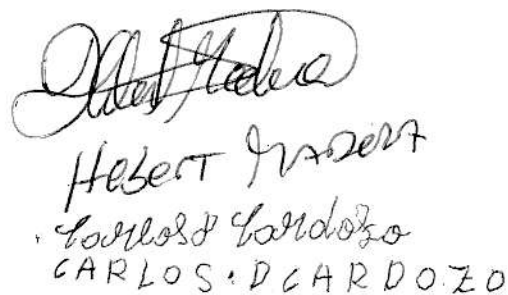 Hebert Madera
Carlos D Cardozo
CARLOS.DCARDOZO